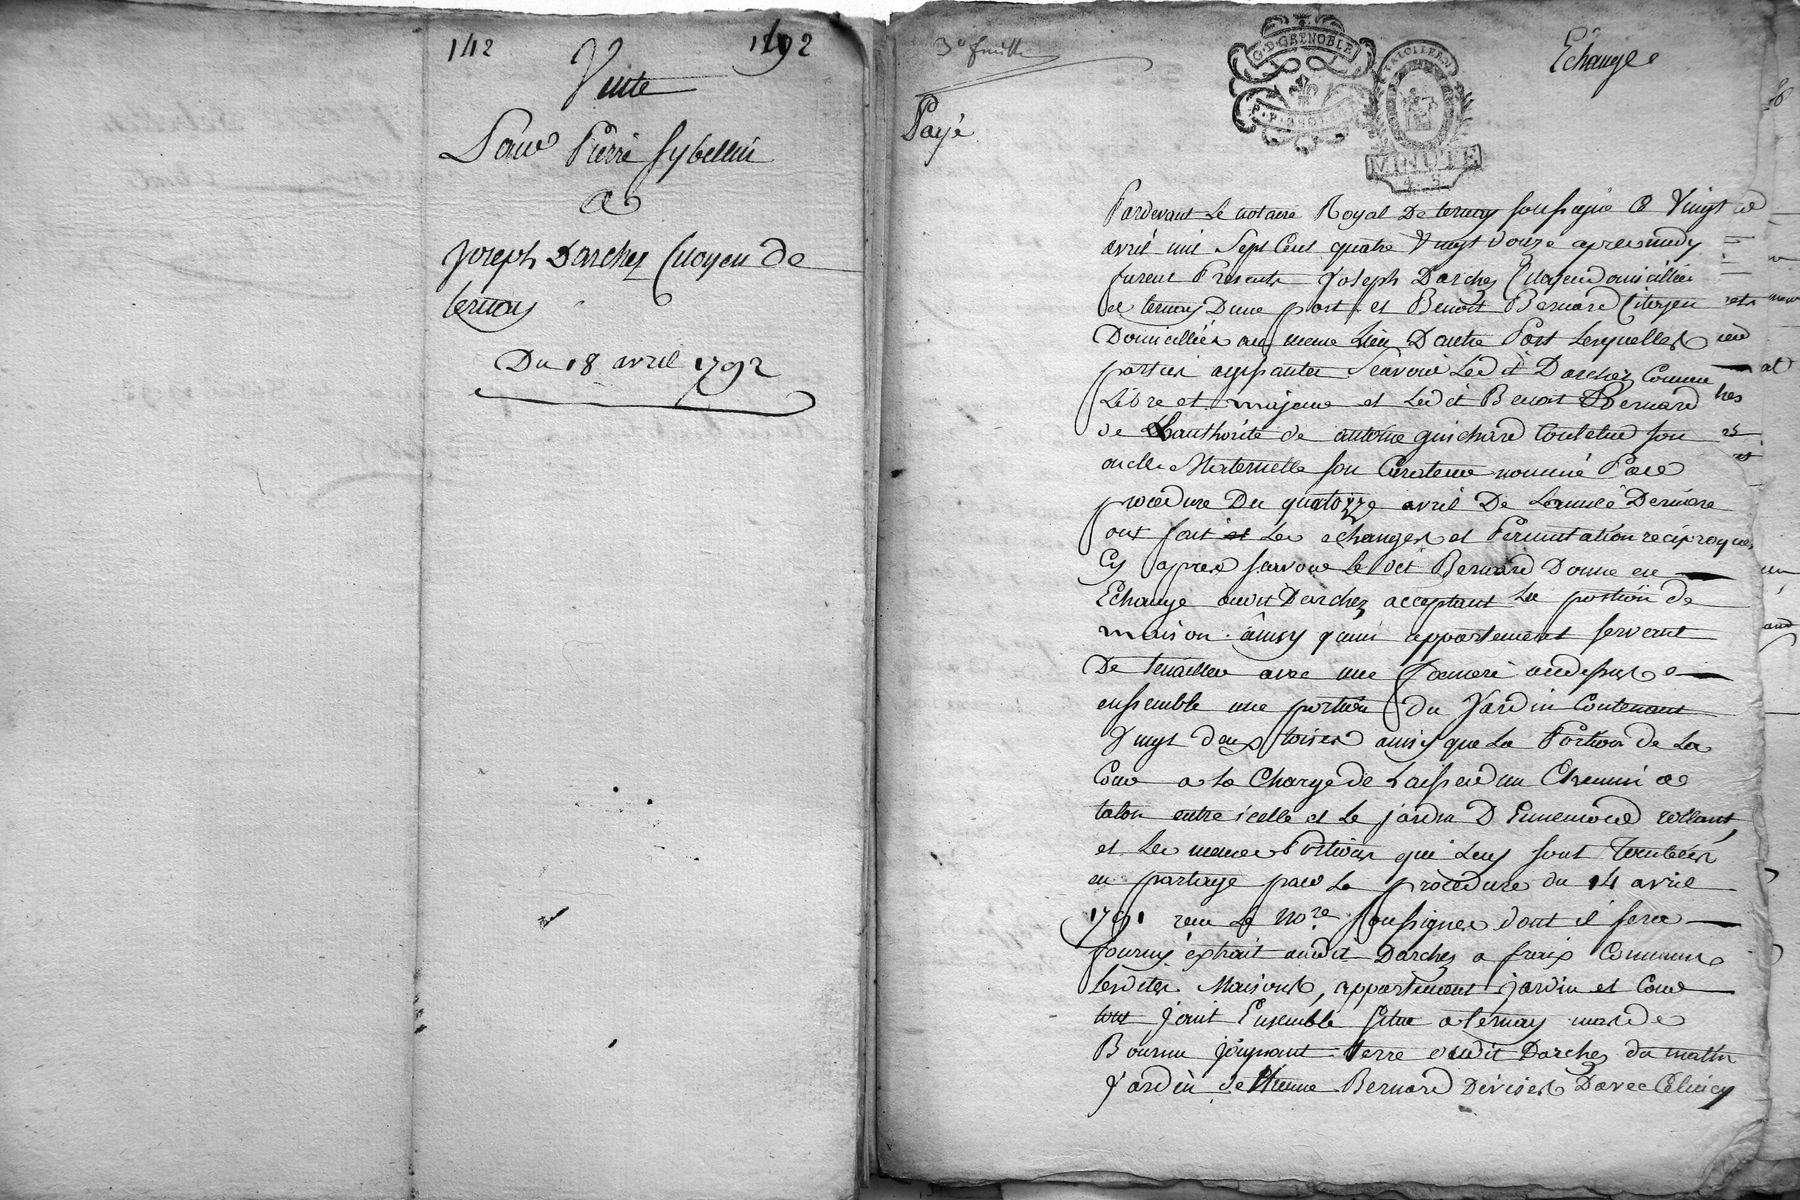 142
1792
Vente
Pour Pierre Sybellin
a
Joseph Darchez Citoyen de
ternay
Du 18 avril 1792
3e feuille
Echange
G.D. GRENOBLE
MINUTE
4. S.
Payé
Pardevant Le notaire Royal De ternay soussigné Ce Vingt
avril mil Sept Cent quatre Vingt douze apres midy
furent Presents Joseph Darchez Citoyen domicillié
a ternay Dune part et Benoit Bernard Citoyen
Domicilliés au meme Lieu Dautre Part Lesquelles
parties Scavoir Ledit Darchez Comme
Libre et majeur et Ledit Benoit Bernard
de Lauthorité de antoine guichard son
oncle Maternelle son Curateur nommé Par
procedure Du quatorze avril De Lannée Derniere
ont fait Les echanges et Permutation reciproques
Cy apres scavoir Le dit Bernard Donne en
Echange audit Darchez acceptant La portion de
maison ainsy qu'un appartement servant
De avec une audessus
ensemble une portion Du Jardin Contenant
Vingt deux toises ainsy que La Portion de La
Cour a La Charge de Laisser un Chemin a
talon entre icelle et Le jardin D Ennemond rolland
et Les meme Portions qui Luy sont
en partage par La procedure du 14 avril
1791 recu Le Nore. soussigné dont il sera
fourny extrait audit Darchez a fraix Communs
Lesdites Maisons, appartement jardin et Cour
tout joint Ensemble situé a ternay mas de
Bournu joignant terre dudit Darchez du matin
Jardin de Etienne Bernard Divisés Davec Celuicy